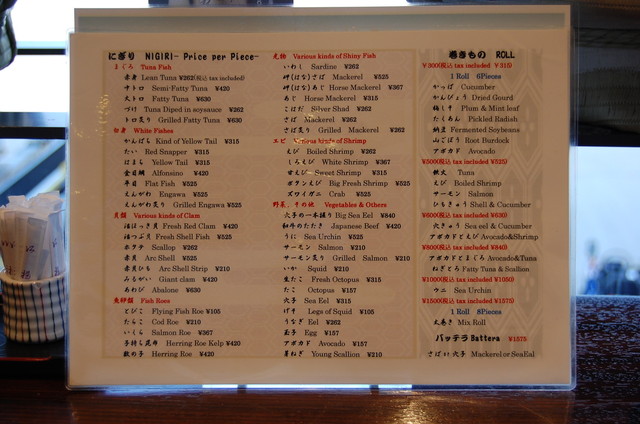 にぎり NIGIRI- Price per Piece-
まぐろ Tuna Fish
赤身 Lean Tuna ¥262(税込 tax included)
中トロ Semi-Fatty Tuna ¥420
大トロ Fatty Tuna ¥630
づけ Tuna Diped in soysauce ¥262
トロ炙り Grilled Fatty Tuna ¥630
白身 White Fishes
かんぱち Kind of Yellow Tail ¥315
たい Red Snapper ¥315
はまち Yellow Tail ¥315
金目鯛 Alfonsino ¥420
平目 Flat Fish ¥525
えんがわ Engawa ¥525
えんがわ炙り Grilled Engawa ¥525
貝類 Various kinds of Clam
活ほっき貝 Fresh Red Clam ¥420
活つぶ貝 Fresh Shell Fish ¥525
ホタテ Scallop ¥262
赤貝 Arc Shell ¥525
赤貝ひも Arc Shell Strip ¥210
みるがい Giant clam ¥420
あわび Abalone ¥630
魚卵類 Fish Roes
とびこ Flying Fish Roe ¥105
たらこ Cod Roe ¥210
いくら Salmon Roe ¥367
子持ち昆布 Herring Roe Kelp ¥420
数の子 Herring Roe ¥420
光物 Various kinds of Shiny Fish
いわし Sardine ¥262
岬(はな)さば Mackerel ¥525
岬(はな)あじ Horse Mackerel ¥367
あじ Horse Mackerel ¥315
こはだ Silver Shad ¥262
さば Mackerel ¥262
さば炙り Grilled Mackerel ¥262
エビ Various kinds of Shrimp
えび Boiled Shrimp ¥262
しろえび White Shrimp ¥367
甘えび Sweet Shrimp ¥315
ボタンえび Big Fresh Shrimp ¥525
ズワイガニ Crab ¥525
野菜、その他 Vegetables & Others
穴子の一本握り Big Sea Eel ¥840
和牛のたたき Japanese Beef ¥420
うに Sea Urchin ¥525
サーモン Salmon ¥210
サーモン炙り Grilled Salmon ¥210
いか Squid ¥210
生たこ Fresh Octopus ¥315
たこ Octopus ¥157
穴子 Sea Eel ¥315
げそ Legs of Squid ¥105
うなぎ Eel ¥262
玉子 Egg ¥157
アボカド Avocado ¥157
芽ねぎ Young Scallion ¥210
巻きもの ROLL
¥300(税込 tax included ¥315)
1 Roll 6Pieces
かっぱ Cucumber
かんぴょう Dried Gourd
梅しそ Plum & Mint leaf
たくあん Pickled Radish
納豆 Fermented Soybeans
山ごぼう Root Burdock
アボカド Avocado
¥500(税込 tax included ¥525)
鉄火 Tuna
えび Boiled Shrimp
サーモン Salmon
ひもきゅう Shell & Cucumber
¥600(税込 tax included ¥630)
穴きゅう Sea eel & Cucumber
アボカドとえび Avocado&Shrimp
¥800(税込 tax included ¥840)
アボカドとまぐろ Avocado&Tuna
ねぎとろ Fatty Tuna & Scallion
¥1000(税込 tax included ¥1050)
ウニ Sea Urchin
¥1500(税込 tax included ¥1575)
1 Roll 8Pieces
太巻き Mix Roll
バッテラ Battera ¥1575
さばか穴子 Mackerel or SeaEel